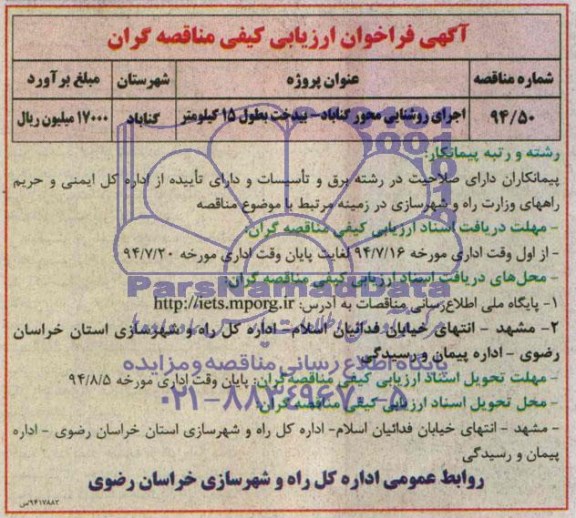 آگهی فراخوان ارزیابی کیفی مناقصه گران
شماره مناقصه عنوان پروژه شهرستان مبلغ برآورد
۹۴/۵۰ اجرای روشنایی محور گناباد - بیدخت بطول ۱۵ کیلومتر گناباد ۱۷۰۰۰ میلیون ریال
رشته و رتبه پیمانکار:
پیمانکاران دارای صلاحیت در رشته برق و تأسیسات و دارای تأییده از اداره کل ایمنی و حریم
راههای وزارت راه و شهرسازی در زمینه مرتبط با موضوع مناقصه
- مهلت دریافت اسناد ارزیابی کیفی مناقصه گران:
- از اول وقت اداری مورخه ۹۴/۷/۱۶ لغایت پایان وقت اداری مورخه ۹۴/۷/۲۰
- محل‌های دریافت اسناد ارزیابی کیفی مناقصه گران:
ParsNamadData
۱- پایگاه ملی اطلاع‌رسانی مناقصات به آدرس: http://iets.mporg.ir
۲- مشهد - انتهای خیابان فدائیان اسلام - اداره کل راه و شهرسازی استان خراسان
رضوی - اداره پیمان و رسیدگی
پایگاه اطلاع رسانی مناقصه و مزایده
- مهلت تحویل اسناد ارزیابی کیفی مناقصه گران: پایان وقت اداری مورخه ۹۴/۸/۵
۰۲۱-۸۸۳۴۹۶۷۰-۵
- محل تحویل اسناد ارزیابی کیفی مناقصه گران:
- مشهد - انتهای خیابان فدائیان اسلام- اداره کل راه و شهرسازی استان خراسان رضوی - اداره
پیمان و رسیدگی
روابط عمومی اداره کل راه و شهرسازی خراسان رضوی
۹۴۱۷۸۸۲/س